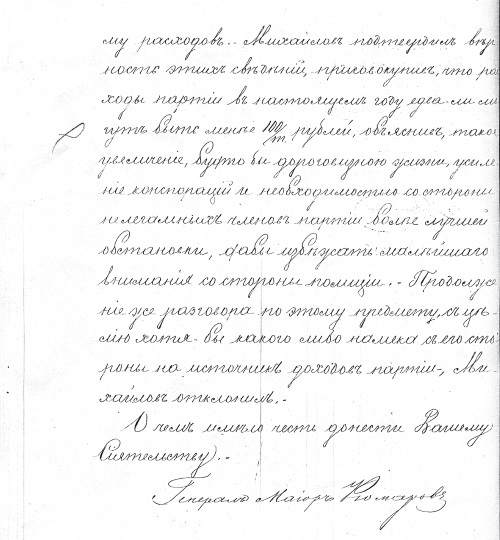 му расходовъ. - Михайловъ подтвердилъ вѣр
ность этихъ свѣдѣній, присовокупивъ, что рас
ходы партіи въ настоящемъ году едва-ли мо
гутъ быть менѣе 100/т. рублей, объяснивъ, такое
увеличеніе, будто бы дороговизною жизни, усиле
ніе конспорацій и необходимостью со стороны
нелегальныхъ членовъ партіи болѣе лучшей
обстановки, дабы избѣжать малѣйшаго
вниманія со стороны полиціи. - Продолже
ніе же разговора по этому предмету, съ цѣ-
лію хотя-бы какого либо намека съ его сто
роны на источникъ доходовъ партіи -, Ми-
хайловъ отклонилъ. -
О чемъ имѣю честь донести Вашему
Сіятельству. -
Генералъ Маіоръ Комаровъ